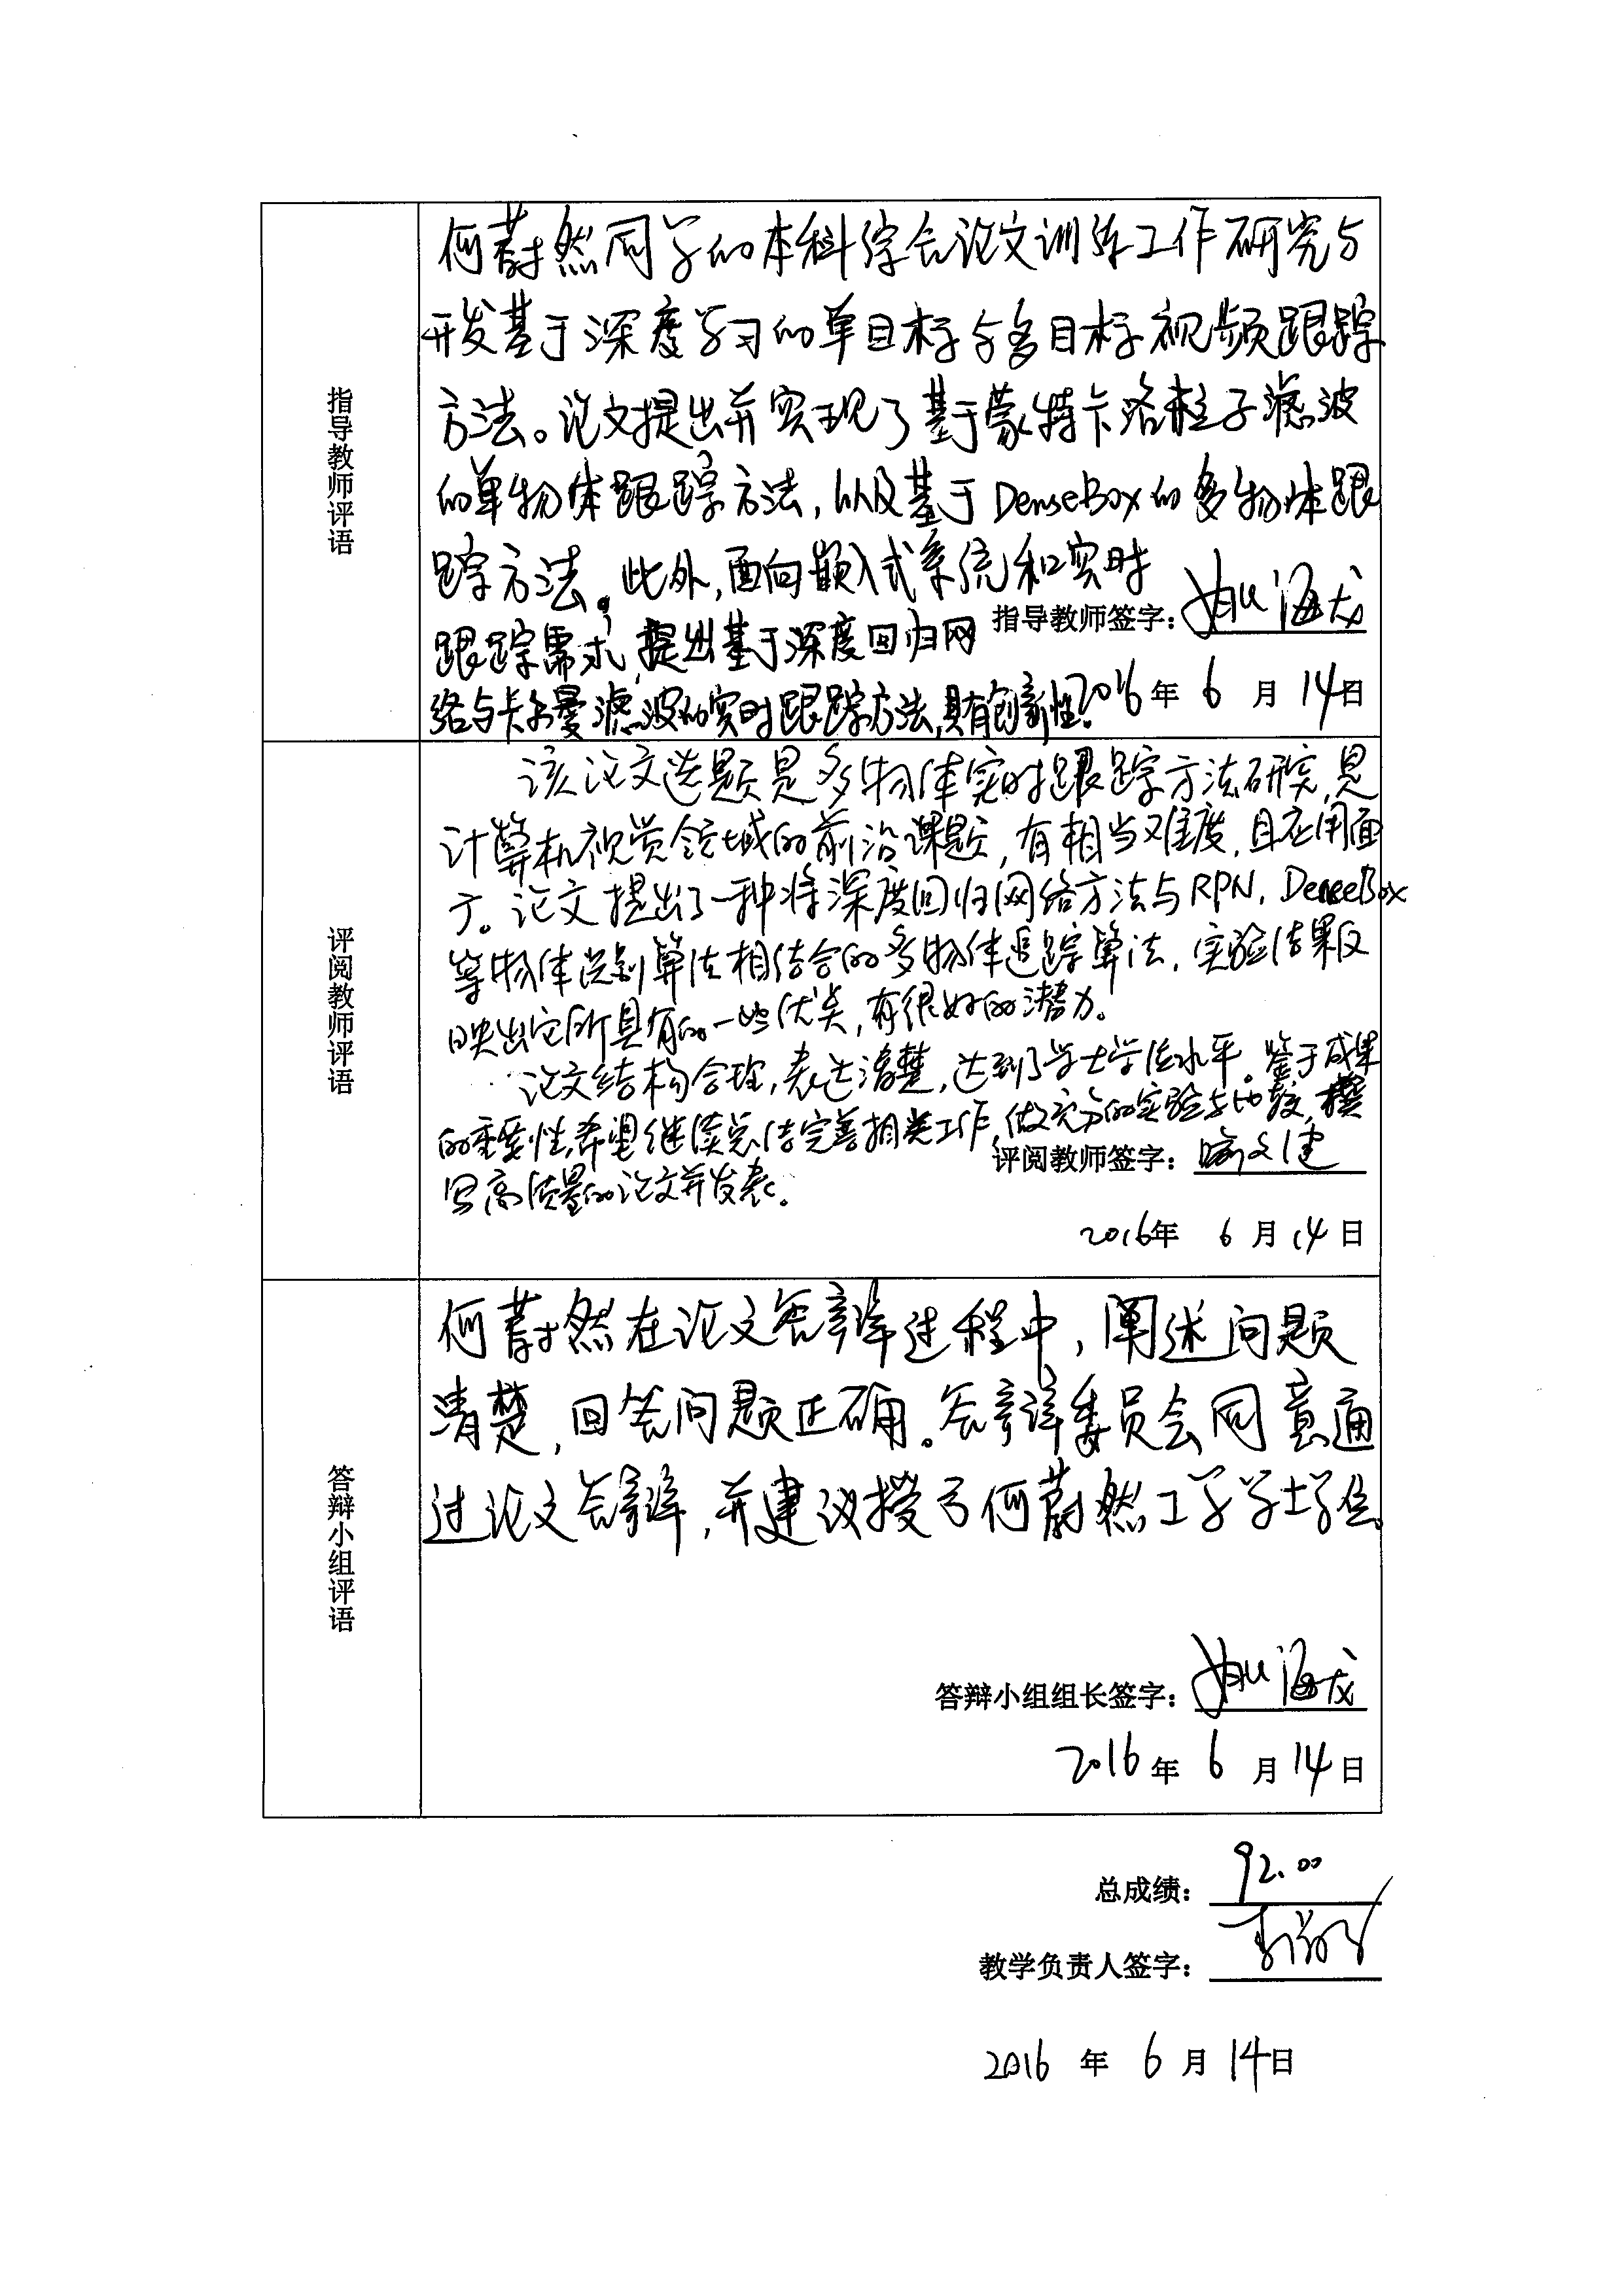 指导教师评语
何蔚然同学的本科综合论文训练工作研究与
开发基于深度学习的单目标与多目标视频跟踪
方法。论文提出并实现了基于蒙特卡洛粒子滤波
的单物体跟踪方法，以及基于DenseBox的多物体跟
踪方法。此外，面向嵌入式系统和实时
跟踪需求，提出基于深度回归网
络与卡尔曼滤波的实时跟踪方法，具有创新性。
指导教师签字：
2016年 6 月 14日
评阅教师评语
该论文选题是多物体实时跟踪方法研究，是
计算机视觉领域的前沿课题，有相当难度，且应用面
广。论文提出了一种将深度回归网络方法与RPN，DenseBox
等物体识别算法相结合的多物体追踪算法，实验结果反
映出它所具有的一些优点，有很好的潜力。
论文结构合理，表达清楚，达到了学士学位水平。鉴于成果
的重要性，希望继续总结完善相关工作，做充分的实验与比较，撰
写高质量的论文并发表。
评阅教师签字：
2016年 6 月 14 日
答辩小组评语
何蔚然在论文答辩过程中，阐述问题
清楚，回答问题正确。答辩委员会同意通
过论文答辩，并建议授予何蔚然工学学士学位。
答辩小组组长签字：
2016 年 6 月 14 日
总成绩： 92.00
教学负责人签字：
2016 年 6 月 14日